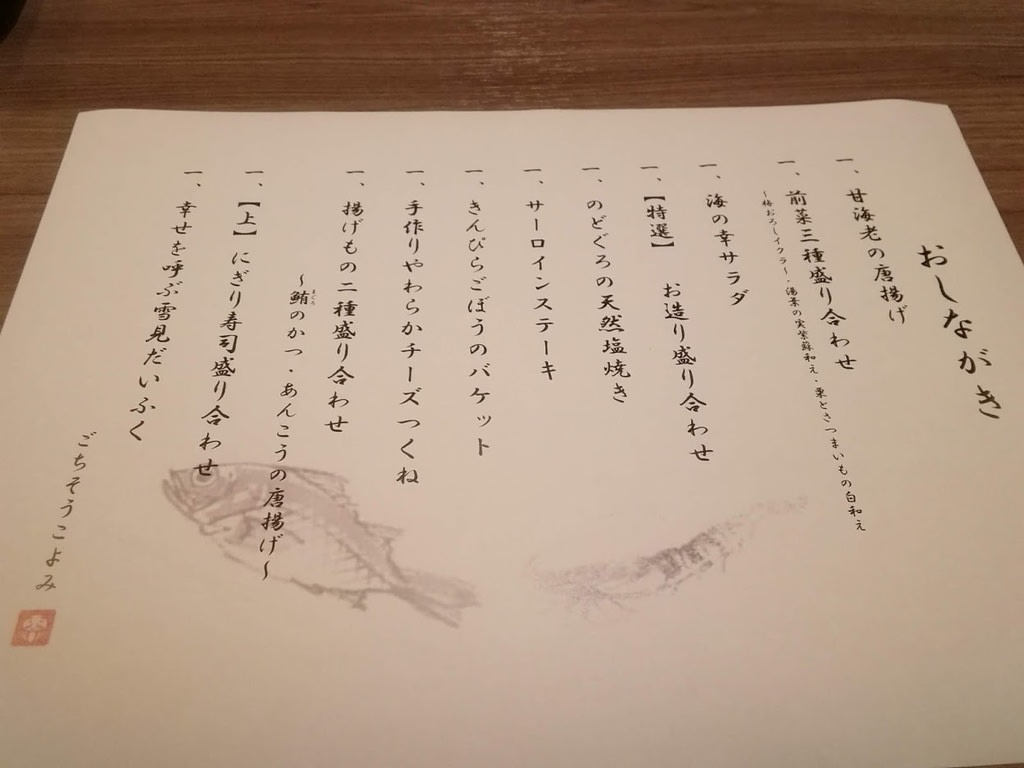 おしながき
一、甘海老の唐揚げ
一、前菜三種盛り合わせ
～梅おろしイクラ・湯葉の実紫蘇和え・栗とさつまいもの白和え
一、海の幸サラダ
一、【特選】 お造り盛り合わせ
一、のどぐろの天然塩焼き
一、サーロインステーキ
一、きんぴらごぼうのバケット
一、手作りやわらかチーズつくね
一、揚げもの二種盛り合わせ
～鮪のかつ・あんこうの唐揚げ～
まぐろ
一、【上】にぎり寿司盛り合わせ
一、幸せを呼ぶ雪見だいふく
ごちそうこよみ